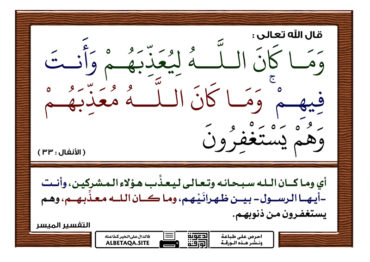 قال الله تعالى :
وَمَا كَانَ اللَّهُ لِيُعَذِّبَهُمْ وَأَنتَ
فِيهِمْ ۚ وَمَا كَانَ اللَّهُ مُعَذِّبَهُمْ
وَهُمْ يَسْتَغْفِرُونَ
( الأنفال : ٣٣ )
أي وما كان الله سبحانه وتعالى ليعذِّب هؤلاء المشركين، وأنت
-أيها الرسول- بين ظهرانَيْهم، وما كان الله معذِّبهم، وهم
يستغفرون من ذنوبهم.
التفسير الميسر
احرص على طباعة
ونشر هذه الورقة
فالدال على الخير كفاعله
ALBETAQA.SITE